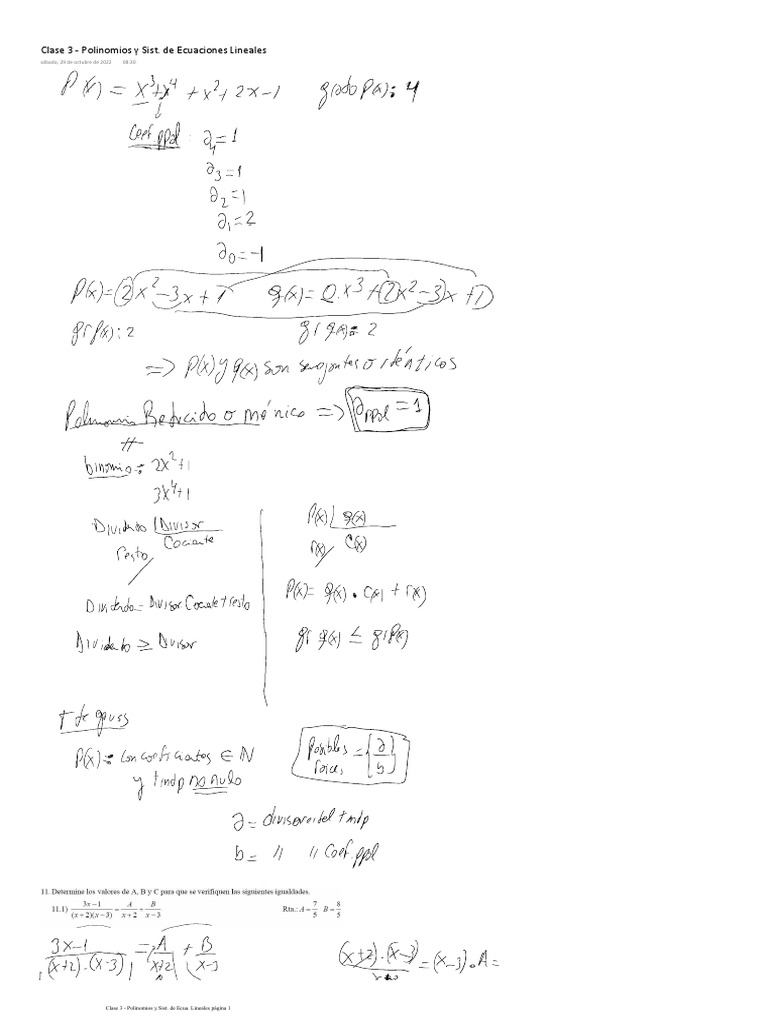 Clase 3 - Polinomios y Sist. de Ecuaciones Lineales
sábado, 29 de octubre de 2022 08:30
P(x) = x³+x⁴ + x²+ 2x-1 grado P(x): 4
Coef. ppal : a₄=1
a₃=1
a₂=1
a₁=2
a₀=-1
P(x)=2x²-3x+1 q(x)=0.x³+2x²-3x+1
gr p(x): 2 gr q(x): 2
=> P(x) y q(x) son semejantes o idénticos
Polinomio Reducido o mónico => a ppal = 1
binomio: 2x²+1
3x⁴+1
Dividendo | Divisor
resto Cociente
P(x) | q(x)
r(x) C(x)
Dividendo = Divisor Cociente + resto
P(x)= q(x) . C(x) + r(x)
Dividendo ≥ Divisor
gr q(x) ≤ gr P(x)
T de gauss
P(x): con coeficientes ∈ N
y t indp no nulo
Posibles raices = {a/b}
a = divisores del t indp
b = // // Coef. ppal
11. Determine los valores de A, B y C para que se verifiquen las siguientes igualdades.
11.1) (3x-1)/((x+2)(x-3)) = A/(x+2) + B/(x-3) Rta.: A = 7/5 B = 8/5
(3x-1)/((x+2).(x-3)) = A/(x+2) + B/(x-3)
(x+2).(x-3)/(x+2) = (x-3).A =
Clase 3 - Polinomios y Sist. de Ecua. Lineales página 1